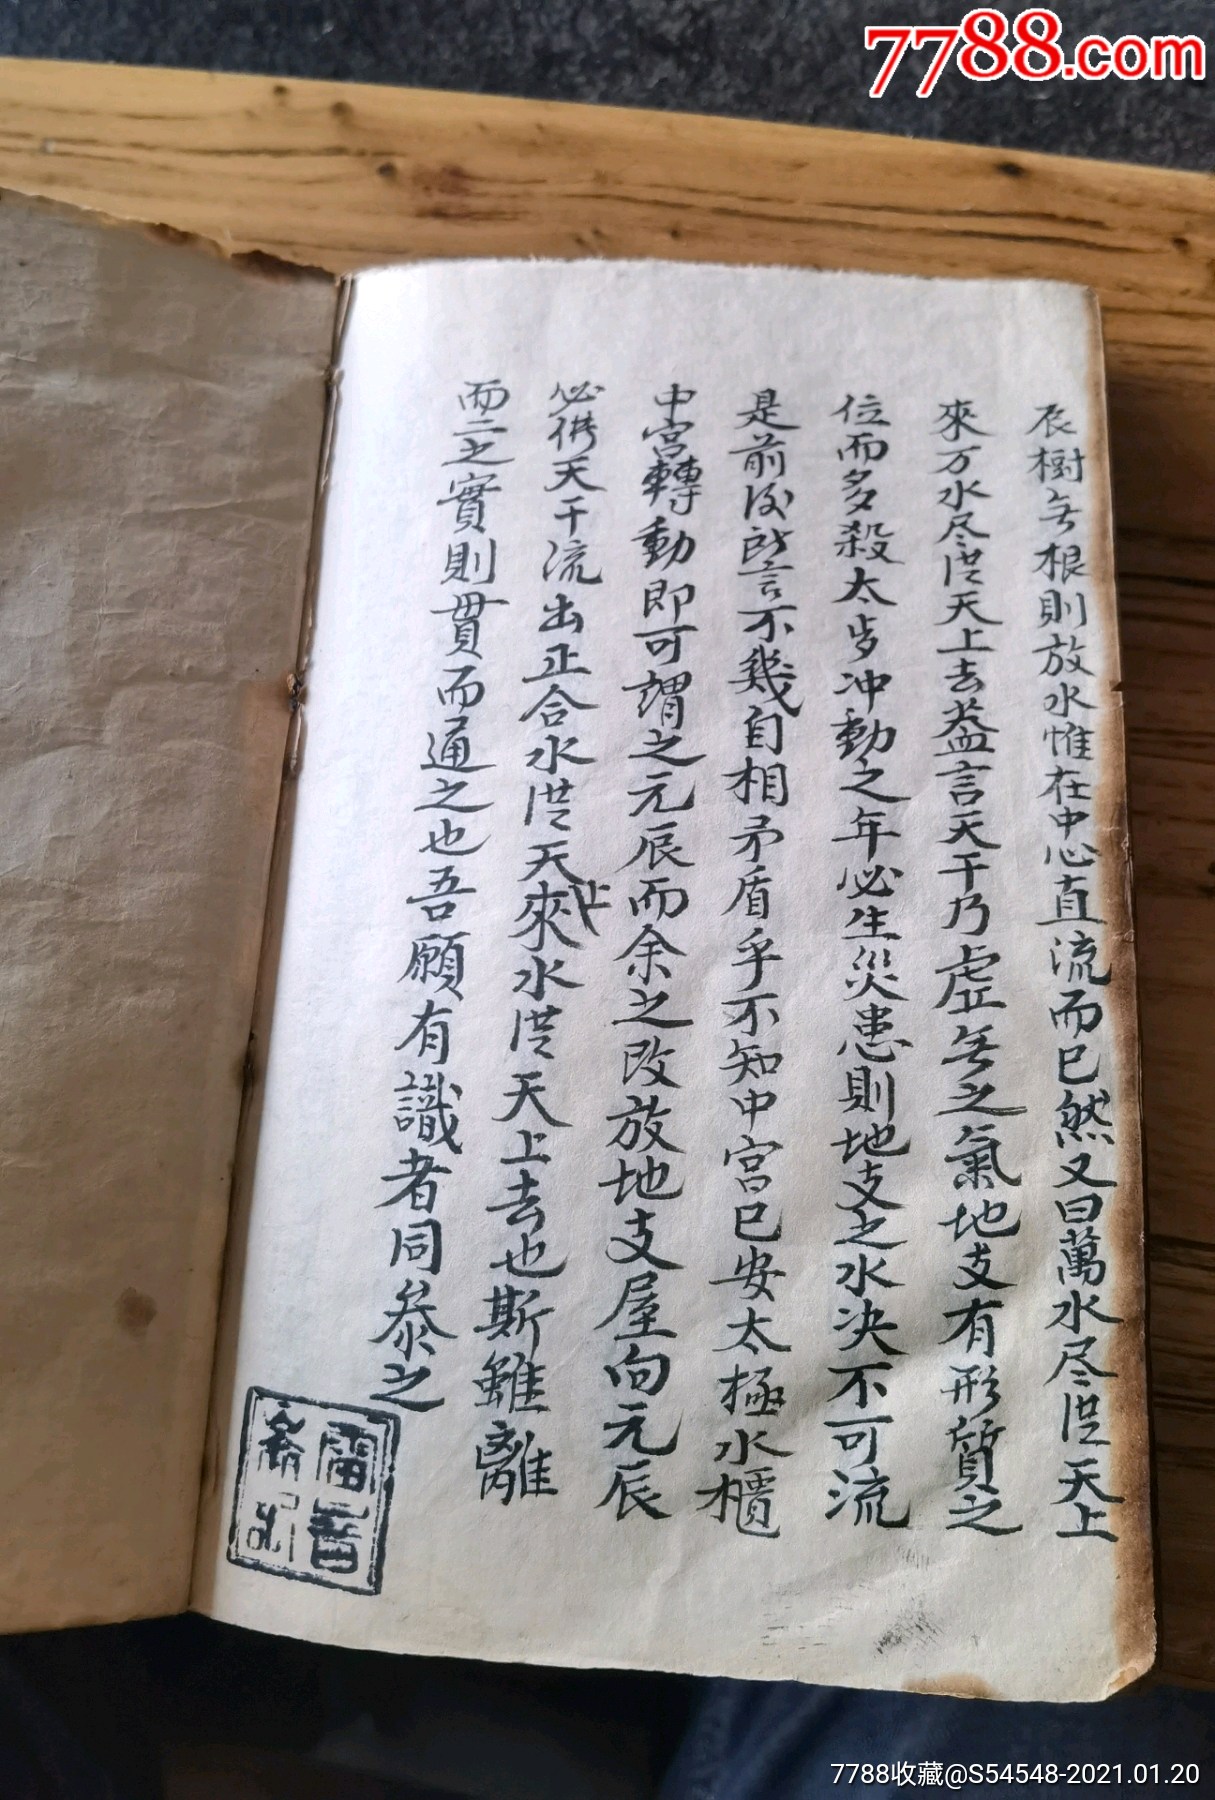 7788.com
辰樹无根則放水惟在中心直流而已然又曰萬水尽從天上
來万水尽從天上去盖言天干乃虛无之氣地支有形質之
位而多殺太岁冲動之年必生災患則地支之水决不可流
是前後所言不幾自相矛盾乎不知中宫已安太極水櫃
中宫轉動即可謂之元辰而余之改放地支屋向元辰
必供天干流出正合水從天上來水從天上去也斯雖離
而二之實則貫而通之也吾願有識者同叅之
7788收藏@S54548-2021.01.20